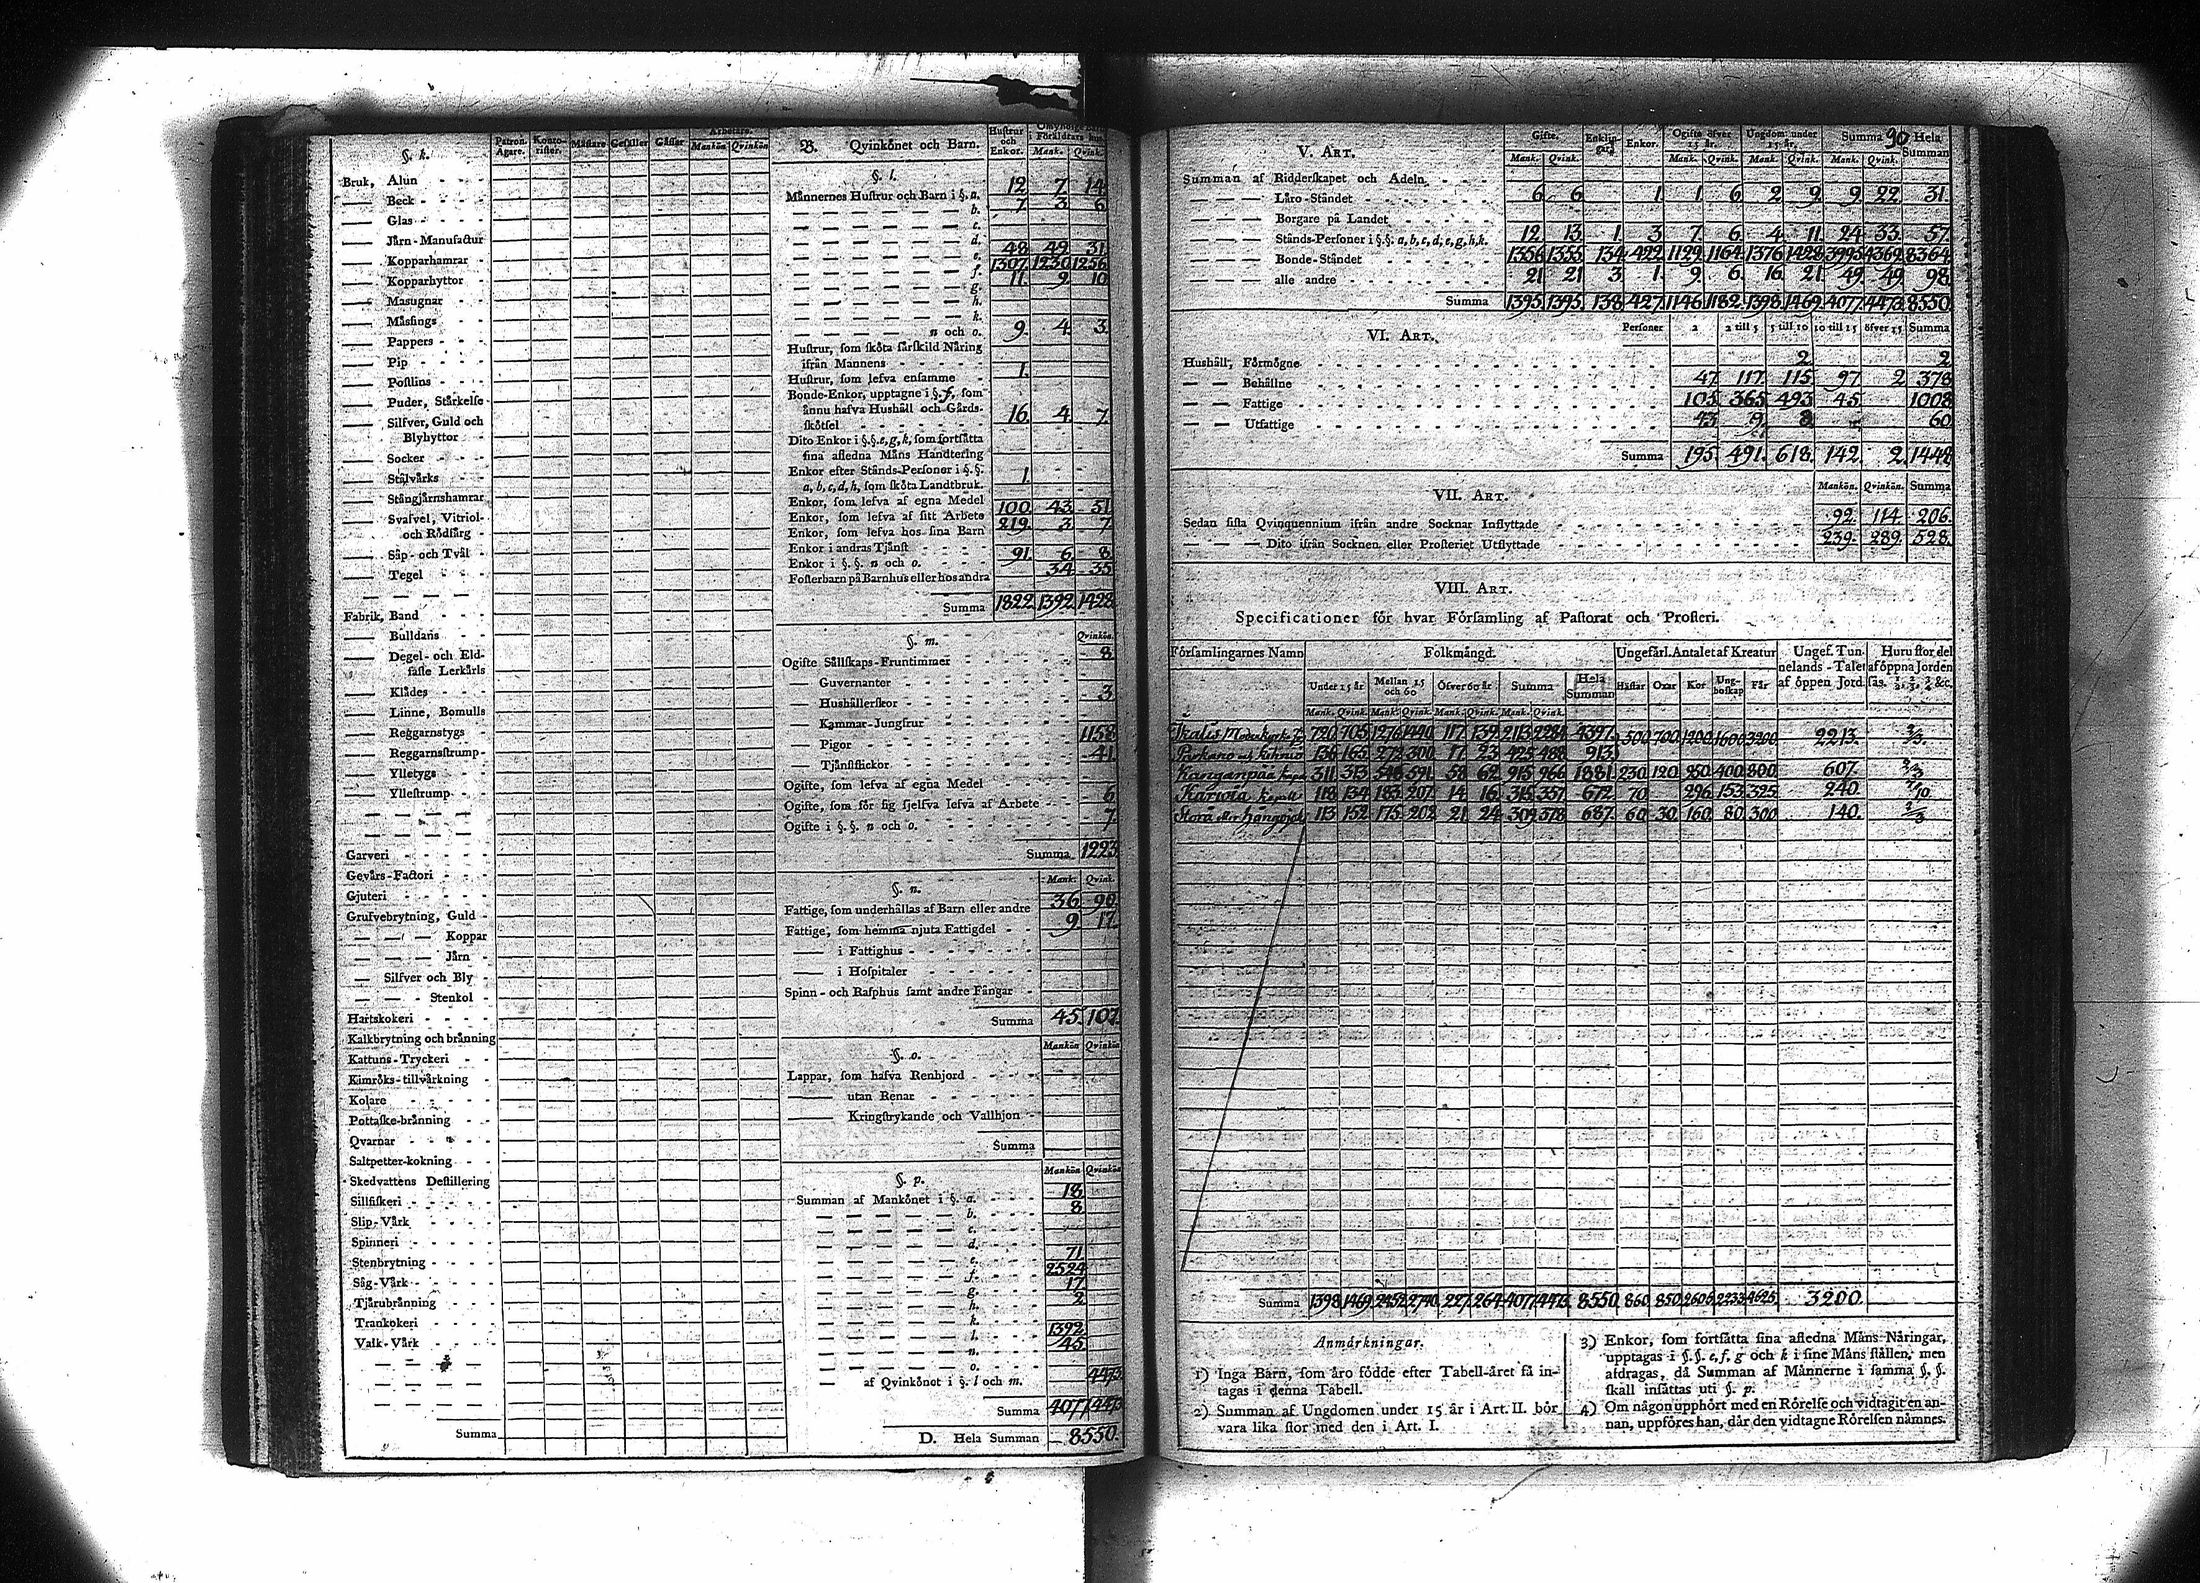 §. k. Patron. Ägare. Konto-rister. Mästare Gesäller Gåssar Arbetare. Mankön Qvinkön
Bruk, Alun
Beck
Glas
Järn-Manufactur
Kopparhamrar
Kopparhyttor
Masugnar
Mässings
Pappers
Pip
Postlins
Puder, Stärkelse
Silfver, Guld och
Blyhyttor
Socker
Stålvärks
Stångjärnshamrar
Svafvel, Vitriol-
och Rödfärg
Såp- och Tvål
Tegel
Fabrik, Band
Bulldans
Degel- och Eld-
faste Lerkärls
Klädes
Linne, Bomulls
Reggarnstygs
Reggarnsstrump
Ylletygs
Yllestrump
Garveri
Gevärs-Factori
Gjuteri
Grufvebrytning, Guld
Koppar
Järn
Silfver och Bly
Stenkol
Hartskokeri
Kalkbrytning och bränning
Kattuns-Tryckeri
Kimröks-tillvärkning
Kolare
Pottaske-bränning
Qvarnar
Saltpetter-kokning
Skedvattens Destillering
Sillfiskeri
Slip-Värk
Spinneri
Stenbrytning
Såg-Värk
Tjärubränning
Trankokeri
Valk-Värk
Summa
B. Qvinkönet och Barn. Hustrur och Enkor. i Föräldrars hus. Mank. Qvink.
§. l.
Männernes Hustrur och Barn i §. a. 12 7 14
b. 7 3 6
c.
d.
e. 48 49 31
f. 1307 1230 1256
g. 11. 9. 10
h.
k.
n och o. 9. 4. 3.
Hustrur, som sköta särskild Näring
ifrån Mannens
Hustrur, som lefva ensamme 1.
Bonde-Enkor, upptagne i §. f, som
ännu hafva Hushåll och Gårds-
skötsel 16. 4. 7.
Dito Enkor i §.§. e, g, k, som fortsätta
sina afledna Mäns Handtering
Enkor efter Stånds-Personer i §.§.
a, b, c, d, h, som sköta Landtbruk. 1.
Enkor, som lefva af egna Medel
Enkor, som lefva af sitt Arbete 100. 43. 51.
Enkor, som lefva hos sina Barn 219. 3. 7.
Enkor i andras Tjänst
Enkor i §. §. n och o. 91. 6. 8.
Fosterbarn på Barnhus eller hos andra 34 35
Summa 1822 1392 1428
§. m. Qvinkön.
Ogifte Sällskaps-Fruntimmer 8.
Guvernanter
Hushållerskor 3.
Kammar-Jungfrur
Pigor 1158
Tjänstflickor 41.
Ogifte, som lefva af egna Medel
Ogifte, som för sig sjelfva lefva af Arbete 6
Ogifte i §. §. n och o. 7.
Summa 1223
§. n. Mank. Qvink.
Fattige, som underhållas af Barn eller andre 36 90
Fattige, som hemma njuta Fattigdel 9. 17.
i Fattighus
i Hospitaler
Spinn- och Rasphus samt andre Fångar
Summa 45. 107.
§. o. Mankön Qvinkön
Lappar, som hafva Renhjord
utan Renar
Kringstrykande och Vallhjon
Summa
§. p. Mankön Qvinkön
Summan af Mankönet i §. a. 18.
b. 8.
c.
d.
e. 71.
f. 2524
g. 17.
h. 2
k.
l. 1392
n. 45
o.
af Qvinkönet i §. l och m. 4473
Summa 4077 4473
D. Hela Summan 8550.
90
V. ART. Gifte. Enklingar. Enkor. Ogifte öfver 15 år. Ungdom under 15 år. Summa Hela Summan
Mank. Qvink. Mank. Qvink. Mank. Qvink. Mank. Qvink.
Summan af Ridderskapet och Adeln
Läro-Ståndet 6 6 1 1 6 2 9 9 22 31.
Borgare på Landet
Stånds-Personer i §.§. a, b, c, d, e, g, h, k. 12 13 1. 3 7 6. 4 11 24 33 57.
Bonde-Ståndet 1356 1355 134 422 1129 1164 1376 1428 3995 4369 8364
alle andre 21 21 3 1. 9. 6. 16. 21 49 49 98
Summa 1395 1395 138 427 1146 1182 1398 1469 4077 4473 8550
VI. ART. Personer 2 2 till 5 5 till 10 10 till 15 öfver 15 Summa
Hushåll, Förmögne 2 2
Behållne 47 117. 115 97 2 378
Fattige 105 365 493 45 1008
Utfattige 43 9. 8 60
Summa 195. 491. 618. 142. 2. 1448
VII. ART. Mankön. Qvinkön. Summa
Sedan sista Qvinquennium ifrån andre Socknar Inflyttade 92. 114. 206.
Dito ifrån Socknen eller Prosteriet Utflyttade 239. 289. 528.
VIII. ART.
Specificationer för hvar Församling af Pastorat och Prosteri.
Församlingarnes Namn Folkmängd. Ungefärl. Antalet af Kreatur Ungef. Tunnelands-Talet af öppen Jord. Huru stor del af öppna Jorden sås. 1/2, 2/3, 3/4 &c.
Under 15 år Mellan 15 och 60 Öfver 60 år Summa Hela Summan Hästar Oxar Kor Ungboskap Får
Mank. Qvink. Mank. Qvink. Mank. Qvink. Mank. Qvink.
Ikalis Moderkyrke 720 705 1276 1440 117 139 2113 2284 4397 500 700 1200 1600 3200 2213. 2/3.
Parkano och Kihniö 136 165 272 300 17 23 425 488 913
Kanganpää Kapell 311 313 546 591 58 62 915 966 1881 230 120 950 400 800 607. 2/3
Karvia Kapell 118 134 183 207 14 16 315 357 672 70 296 153 325 240
Stora eller Hangojoki 113 152 175 202 21 24 309 378 687. 60 30 160 80 300 140. 2/3
Summa 1398 1469 2452 2740 227 264 4077 4473 8550 860 850 2606 2233 4625 3200.
Anmärkningar.
1) Inga Barn, som äro födde efter Tabell-året få in-
tagas i denna Tabell.
2) Summan af Ungdomen under 15 år i Art. II. bör
vara lika stor med den i Art. I.
3) Enkor, som fortsätta sina afledna Mäns Näringar,
upptagas i §. §. e, f, g och k i sine Mäns ställen, men
afdragas, då Summan af Männerne i samma §. §.
skall insättas uti §. p.
4) Om någon upphört med en Rörelse och vidtagit en an-
nan, uppföres han, där den vidtagne Rörelsen nämnes.